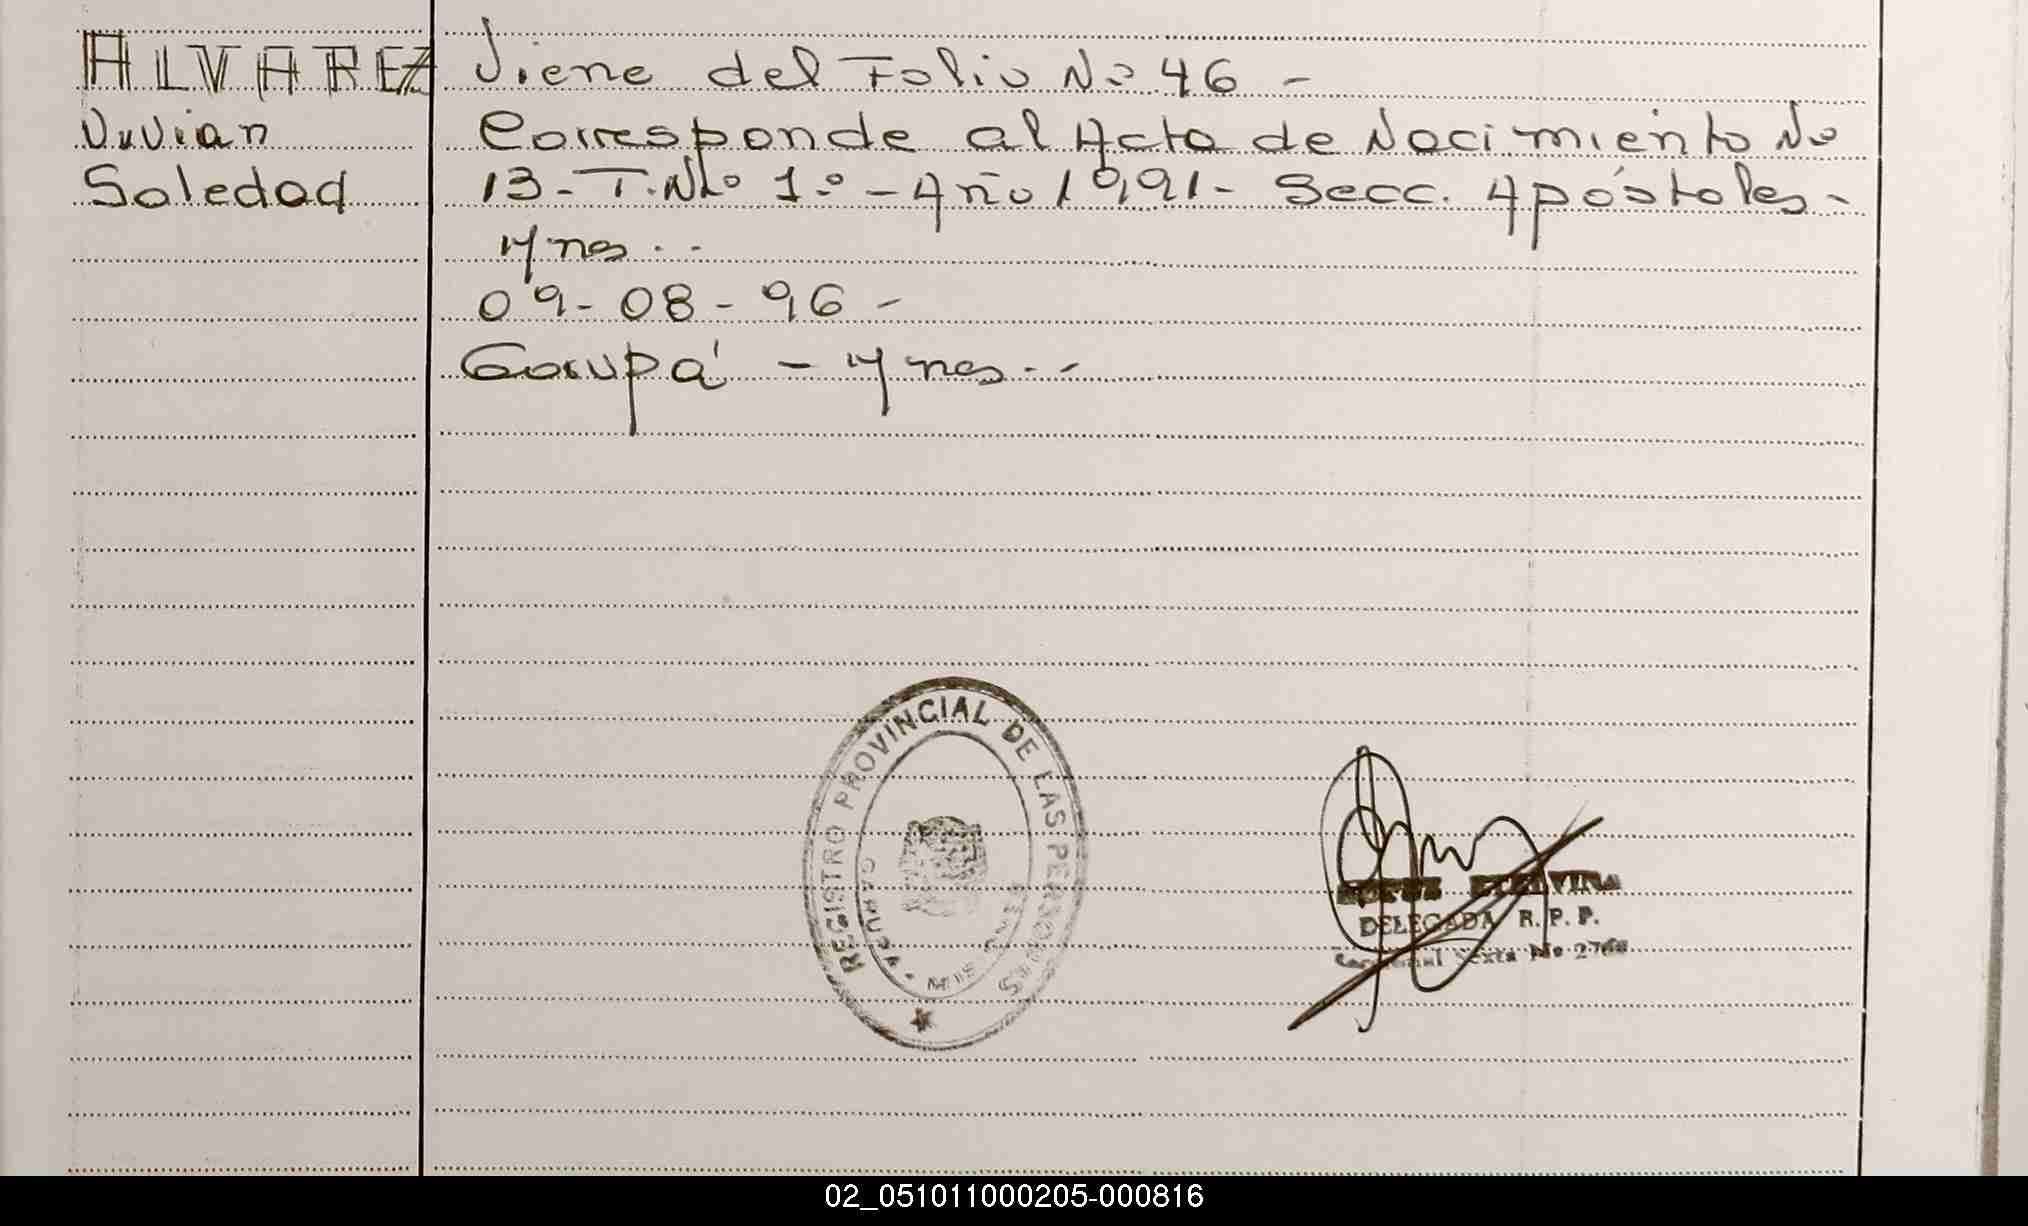 ALVAREZ
Vivian
Soledad
Viene del Folio No 46 -
Corresponde al Acta de Nacimiento No
13 - T. No 1º - Año 1991 - Secc. Apóstoles -
Mnes. --
09 - 08 - 96 -
Garupá - Mnes. --
REGISTRO PROVINCIAL DE LAS PERSONAS
GARUPA
MISIONES
ETELVINA
DELEGADA R. P. P.
Sexta No
02_051011000205-000816